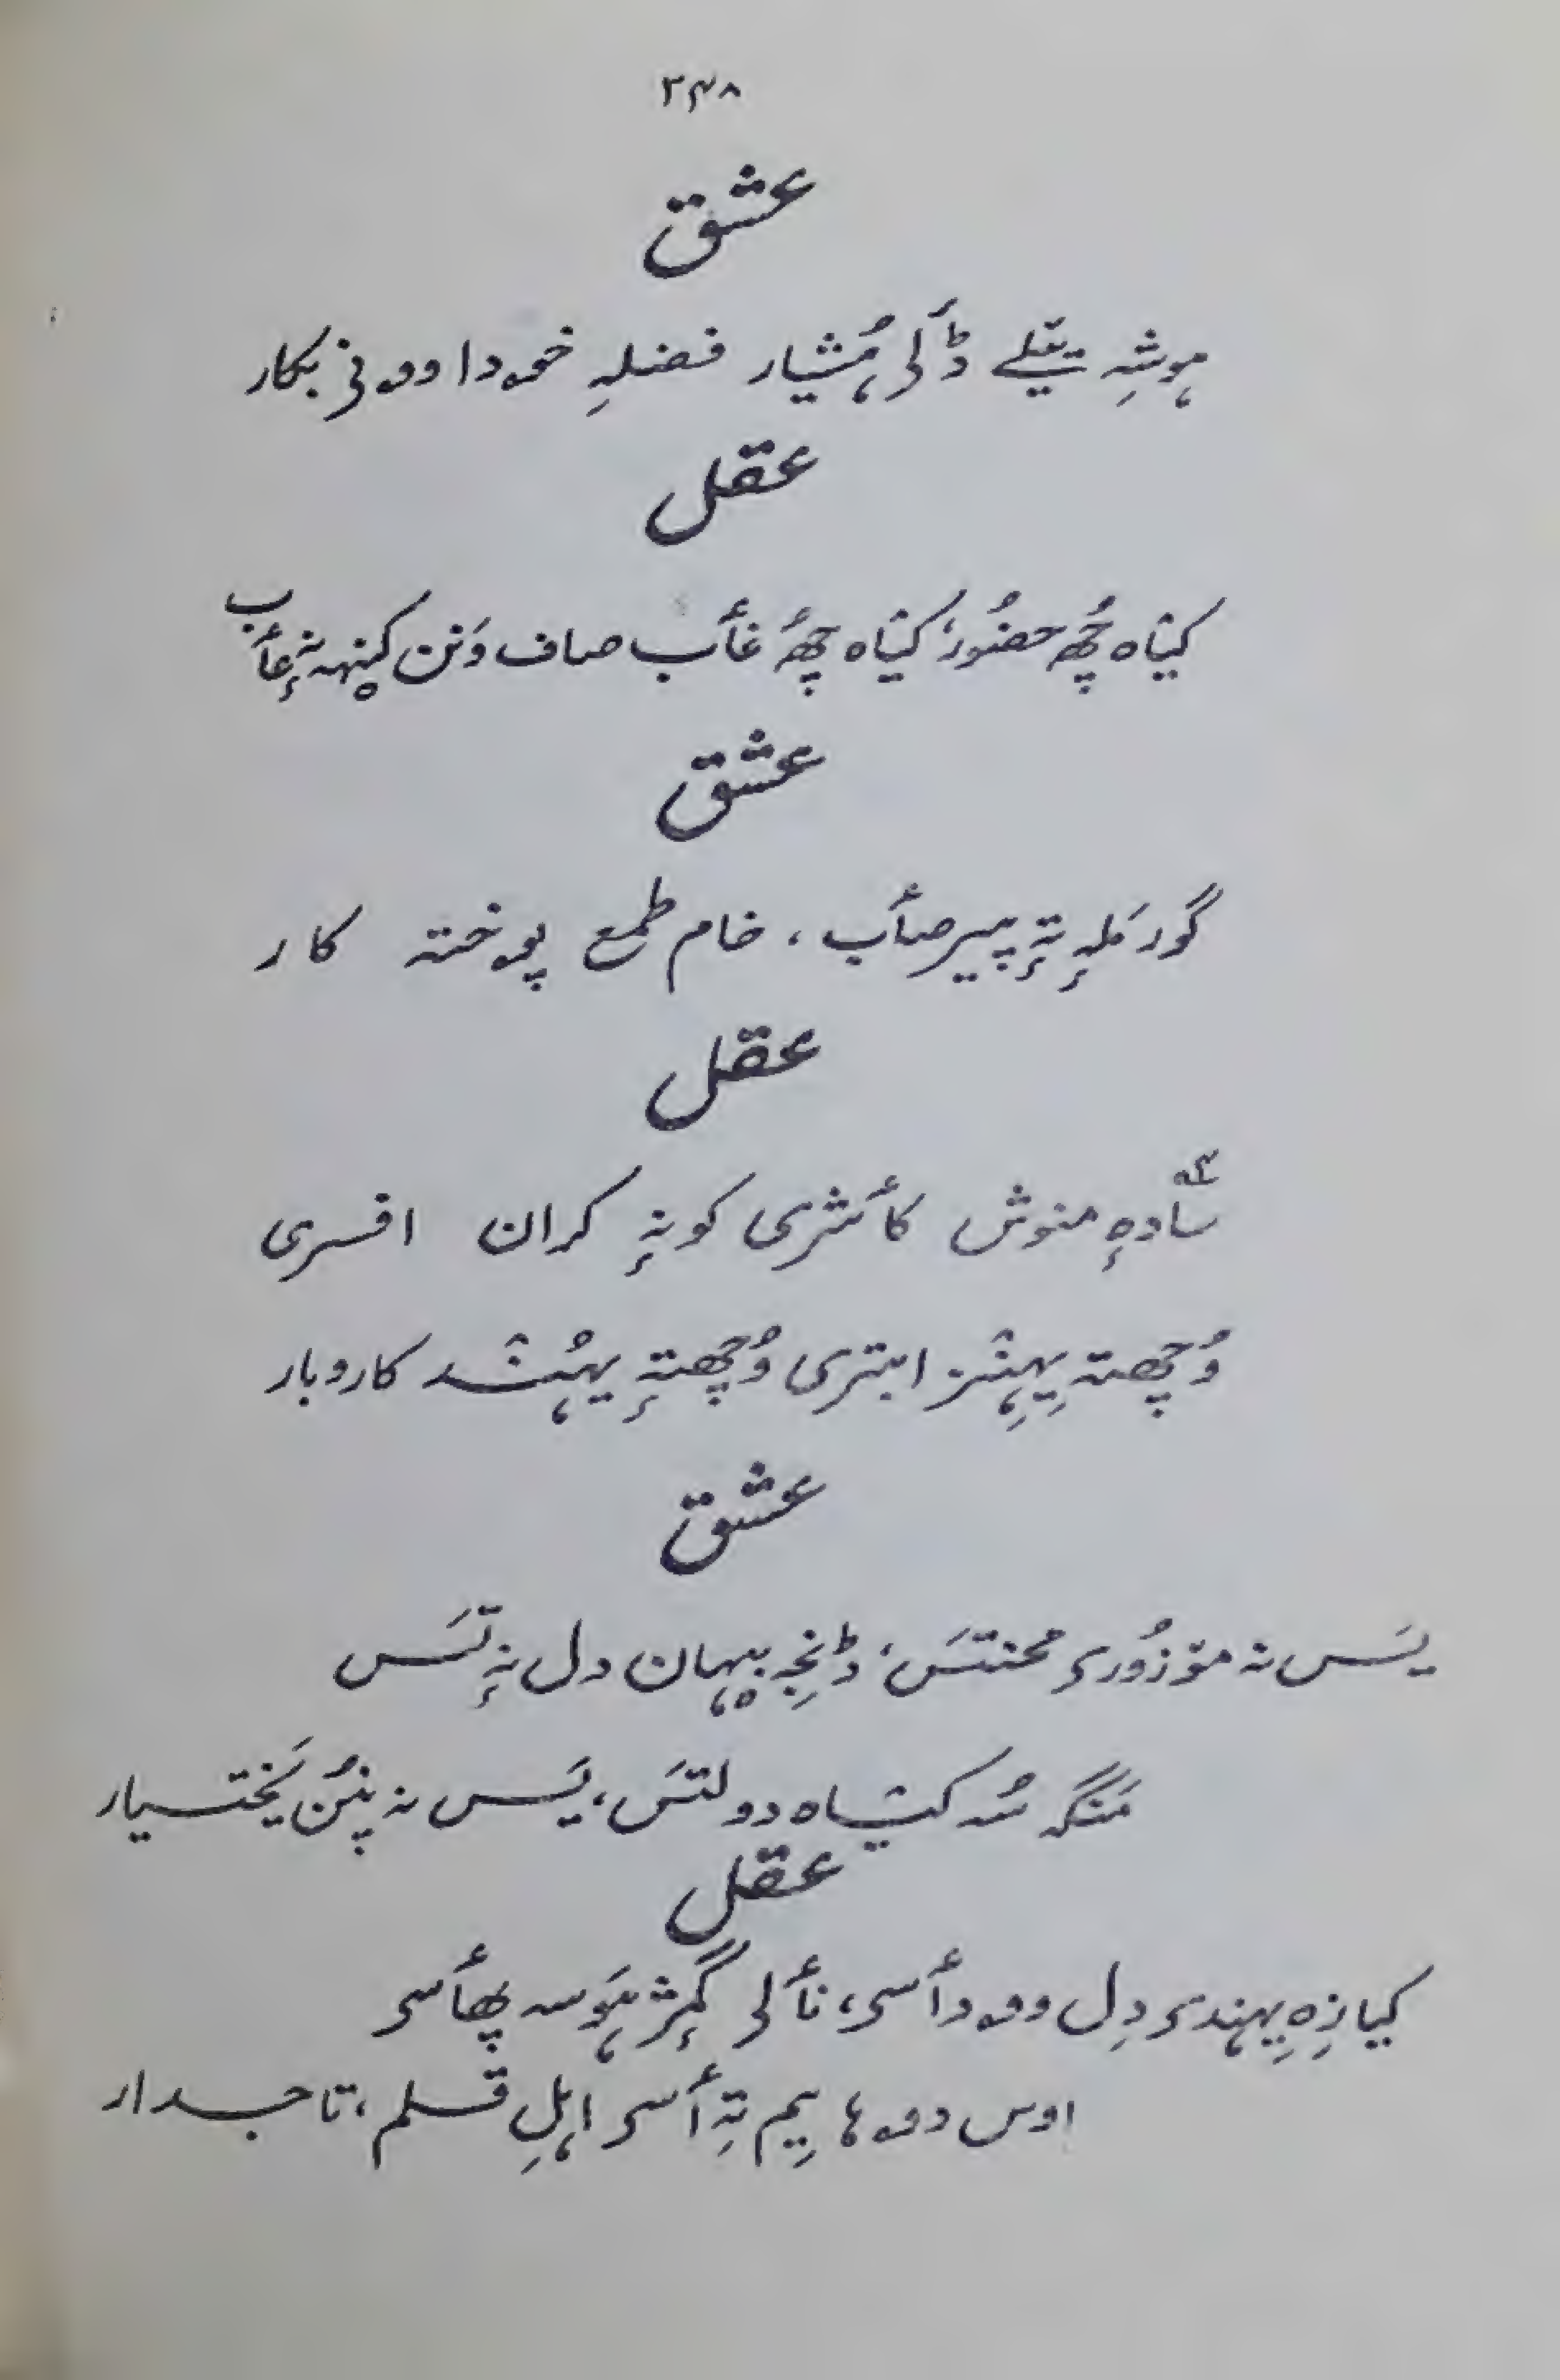 ۳۴۸
عشق
ہوشہِ تیتلے ڈٔلی ہُشیار فضلہِ خۄدا وۄنی بکار
عقل
کیٛاہ چُھ حضُور، کیٛاہ چُھ غٲب صاف وَنن کینہہ نہٕ عٲب
عشق
گور مَلہٕ تہٕ پیر صٲب، خام طمع پۄختہ کار
عقل
سادہٕ منوش کٲشری کونہٕ کران افسری
وُچھتہ یِہنٛز ابتری وُچھتہٕ یہُنٛد کاروبار
عشق
یَس نہ مۆزُوری محنتَس، ڈنجہِ بیہان دل نہٕ تَس
مَنگہِ سُہ کیٛاہ دولتَس، یَس نہ پنُن یَختیار
عقل
کیازِہ یِہندی دِل وۄدٲسی، نٲلی گمٕژ ہَوَسہ پھٲسی
اوس دۄہا یِم تہِ ٲسی اہلِ قلم، تاجدار